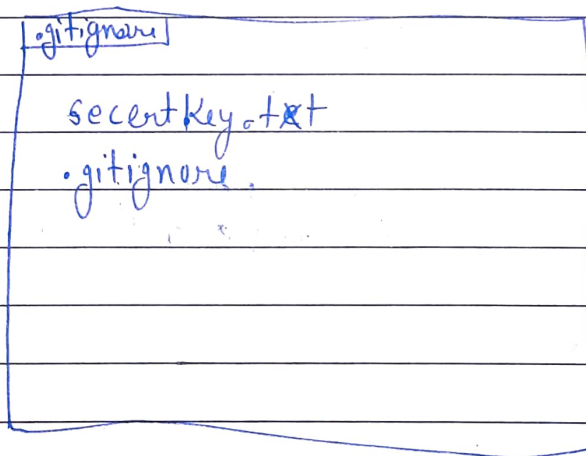 .gitignore
secertkey.txt
.gitignore.